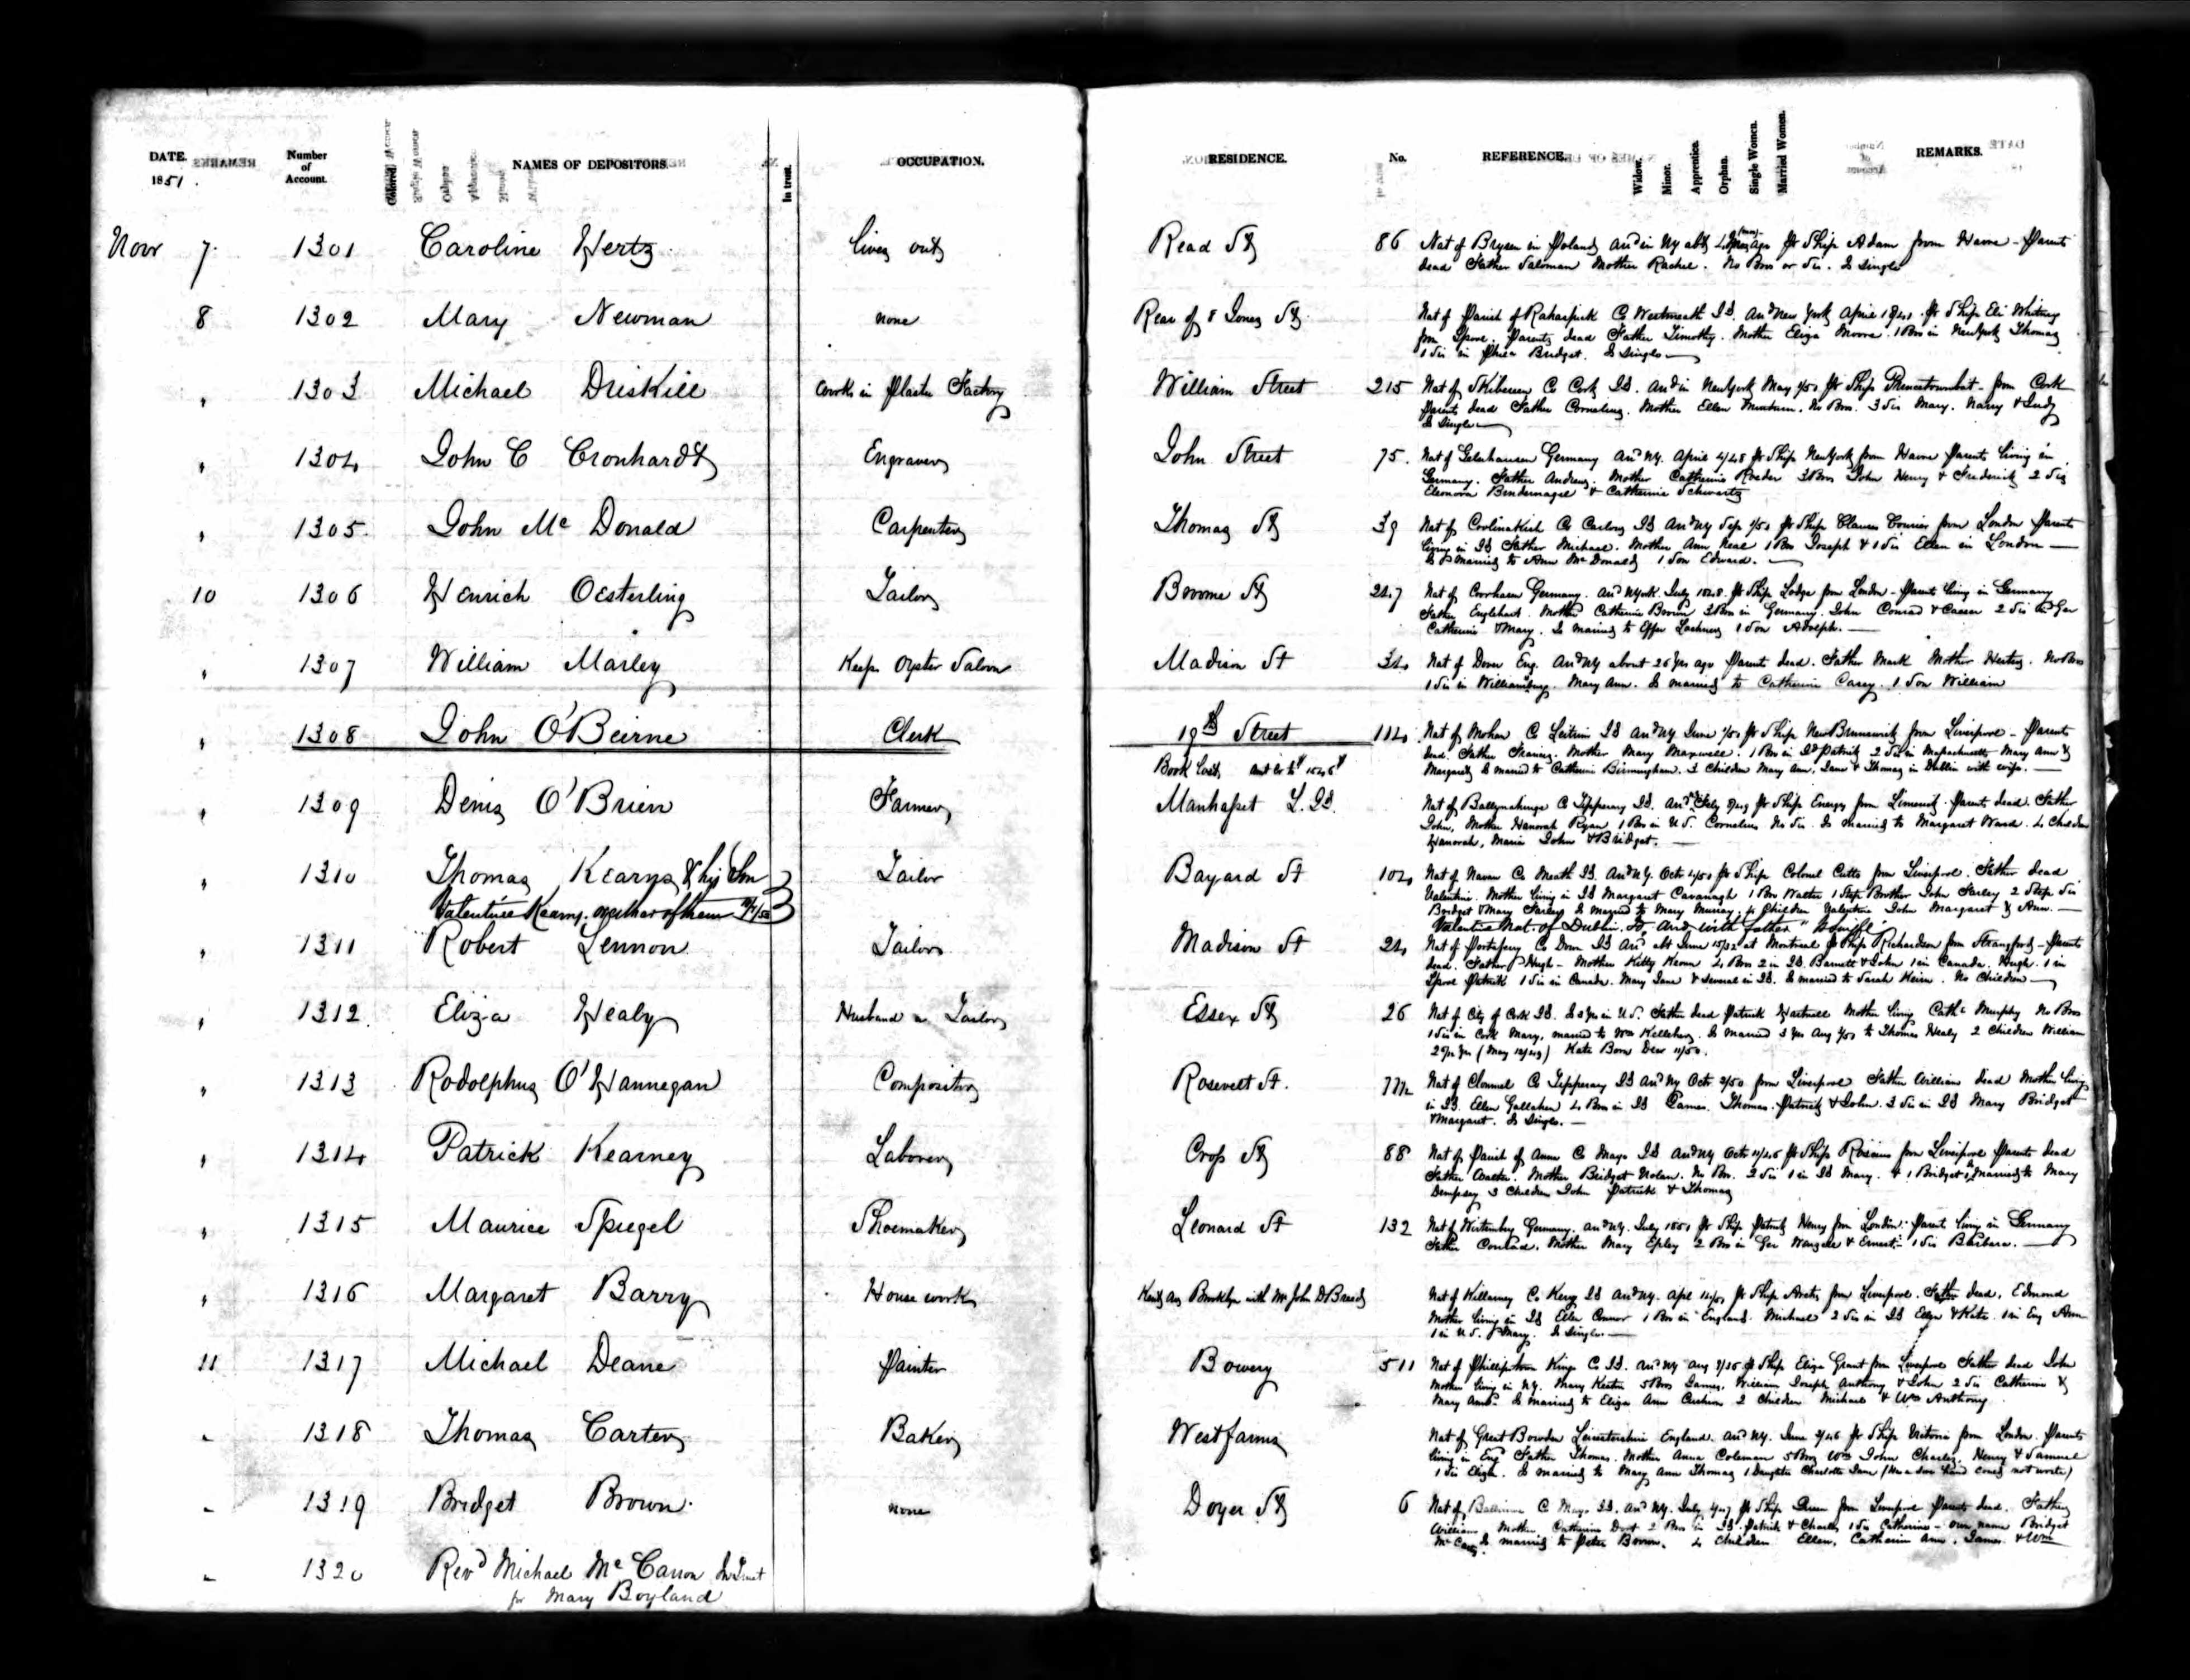 DATE. Number of Account. Colored. NAMES OF DEPOSITORS. In trust. OCCUPATION. RESIDENCE. No. REFERENCE. Widow. Minor. Apprentice. Orphan. Single Women. Married Women. REMARKS.
1851.
Novr 7. 1301 Caroline Hertz lives out Read St 86 Nat of in Poland Arrd in Ny abt ago pr Ship Adam from Havre - Parents
dead Father Saloman Mother Rachel. No Bros or Sis. Is Single
8 1302 Mary Newman none Rear of 8 Jones St Nat of Parish of C Westmeath Id. Arrd New York April pr Ship Eli Whitney
from Lpool. Parents dead Father Timothy. Mother Eliza Moore. 1 Bro in New York Thomas
1 Sis in Phila Bridget. Is Single
" 1303 Michael Driskill works in Plaster Factory William Street 215 Nat of Skibereen C Cork Id. Arrd in New York May /51 pr Ship from Cork
Parents dead Father Cornelius. Mother Ellen. No Bros. 3 Sis Mary. Nancy & Judy
Is Single
" 1304 John C Cronhardt Engraver John Street 75. Nat of Gelnhausen Germany Arrd NY. April 4/48 pr Ship New York from Havre Parents living in
Germany. Father Andreas. Mother Catherine Roeder 3 Bros John Henry & Frederick 2 Sis
Eleonora Bindernagel & Catherine Schwartz
" 1305. John Mc Donald Carpenter Thomas St 39 Nat of C Carlow Id Arrd NY Sep /51 pr Ship from London Parents
living in Id Father Michael. Mother Ann Neal 1 Bro Joseph & 1 Sis Ellen in London
Is married to Ann McDonald 1 Son Edward.
10 1306 Henrich Oesterling Tailor Broome St 247 Nat of Germany. Arrd NYork. July 1848. pr Ship Lodge from London - Parents living in Germany
Father Englehart. Mother Catherine Brown 3 Bros in Germany. John Conrad & 2 Sis in Ger
Catherine & Mary. Is married to 1 Son Adolph.
" 1307 William Marley Keeps Oyster Saloon Madison St 34 Nat of Dover Eng. Arrd NY about 26 yrs ago Parents dead. Father Mark Mother. No Bros
1 Sis in Williamsburg. Mary Ann. Is married to Catherine Casey. 1 Son William
" 1308 John O'Beirne Clerk 19th Street 114. Nat of Mohan C Leitrim Id Arrd NY June /51 pr Ship New Brunswick from Liverpool - Parents
dead. Father. Mother Mary Maxwell. 1 Bro in Id Patrick 2 Sis in Massachusetts Mary Ann &
Book lost Margaret Is married to Catherine Birmingham. 3 Children Mary Ann, Jane & Thomas in Dublin with wife.
" 1309 Denis O'Brien Farmer Manhasset L. Id. Nat of C Tipperary Id. Arrd July /49 pr Ship Energy from Limerick. Parents dead. Father
John, Mother Hanorah Ryan 1 Bro in U.S. Cornelius No Sis. Is married to Margaret Ward. 4 Children
Hanorah, Maria John & Bridget.
" 1310 Thomas Kearns & his Son Tailor Bayard St 104 Nat of Navan C Meath Id. Arrd NY. Oct 4/50 pr Ship Colonel Cutts from Liverpool. Father dead
Valentine. Mother living in Id Margaret Cavanagh 1 Bro Walter 1 Step Brother John Farley 2 Step Sis
Valentine Kearns. or either of them Bridget & Mary Farley Is married to Mary Murray. 4 Children Valentine John Margaret & Ann.
Valentine Nat. of Dublin. Id. Arrd with father. Is Single
" 1311 Robert Lennon Tailor Madison St 24 Nat of Portaferry C Down Id Arrd abt June 15/32 at Montreal pr Ship Richardson from Strangford - Parents
dead. Father Hugh - Mother Kitty 4 Bros 2 in Id. Barnett & John 1 in Canada. Hugh. 1 in
Lpool Patrick 1 Sis in Canada. Mary Jane & several in Id. Is married to Sarah. No Children
" 1312. Eliza Healy Husband a Tailor Essex St 26 Nat of City of Cork Id. Is 2 yrs in U.S. Father dead Patrick Hartnell Mother living Cathe Murphy No Bros
1 Sis in Cork Mary, married to Wm Kelleher. Is married 3 yrs Aug to Thomas Healy 2 Children William
2 yrs (May) Kate Born Decr 11/50.
" 1313 Rodolphus O'Hannegan Compositor Rosevelt St. Nat of Clonmel C Tipperary Id Arrd Ny Oct 3/50 from Liverpool Father William dead Mother living
in Id. Ellen Gallaher 4 Bros in Id James. Thomas. Patrick & John. 3 Sis in Id Mary Bridget
& Margaret. Is Single.
" 1314 Patrick Kearney Laborer Cross St 88 Nat of Parish of C Mayo Id Arrd NY Oct 11/46 pr Ship Roscius from Liverpool Parents dead
Father Walter. Mother Bridget Nolan. No Bro. 2 Sis 1 in Id Mary. & 1 Bridget. Is married to Mary
Dempsey 3 Children John Patrick & Thomas
" 1315 Maurice Spiegel Shoemaker Leonard St 132 Nat of Germany. Arrd NY. July 1851 pr Ship Patrick Henry from London. Parents living in Germany
Father Conrad. Mother Mary Epley 2 Bro in Ger & Ernest. 1 Sis Barbara.
" 1316 Margaret Barry House work Brooklyn with Mr John Nat of Killarney C. Kerry Id Arrd NY. Apl pr Ship Arctic from Liverpool. Father dead, Edmond
Mother living in Id Ellen Connor 1 Bro in England. Michael 2 Sis in Id Ellen & Kate. 1 in Eng Ann
1 in U.S. Mary. Is Single.
11 1317 Michael Deane Painter Bowery 511 Nat of Philipstown Kings C Id. Arrd NY Aug /26 pr Ship Eliza Grant from Liverpool Father dead John
Mother living in NY. Mary 5 Bros James, William Joseph Anthony & John 2 Sis Catherine &
Mary Ann. Is married to Eliza Ann 2 Children Michael & Wm Anthony
" 1318 Thomas Carter Baker Westfarms Nat of Great Bowden Leicestershire England. Arrd NY. June /46 pr Ship Victoria from London. Parents
living in Eng Father Thomas. Mother Anna Coleman 5 Bros Wm John Charles, Henry & Samuel
1 Sis Eliza. Is married to Mary Ann Thomas 1 Daughter Charlotte Jane (Has a sore hand could not write)
" 1319 Bridget Brown. none Doyer St 6 Nat of C Mayo Id. Arrd NY. July /47 pr Ship Queen from Liverpool Parents dead. Father
William. Mother Catherine 2 Bros in Id Patrick & Charles 1 Sis Catherine - own name Bridget
Is married to Peter Brown. 4 Children Ellen, Catherine Ann, James & Wm
" 1320 Revd Michael Mc Carron In Trust
for Mary Boyland